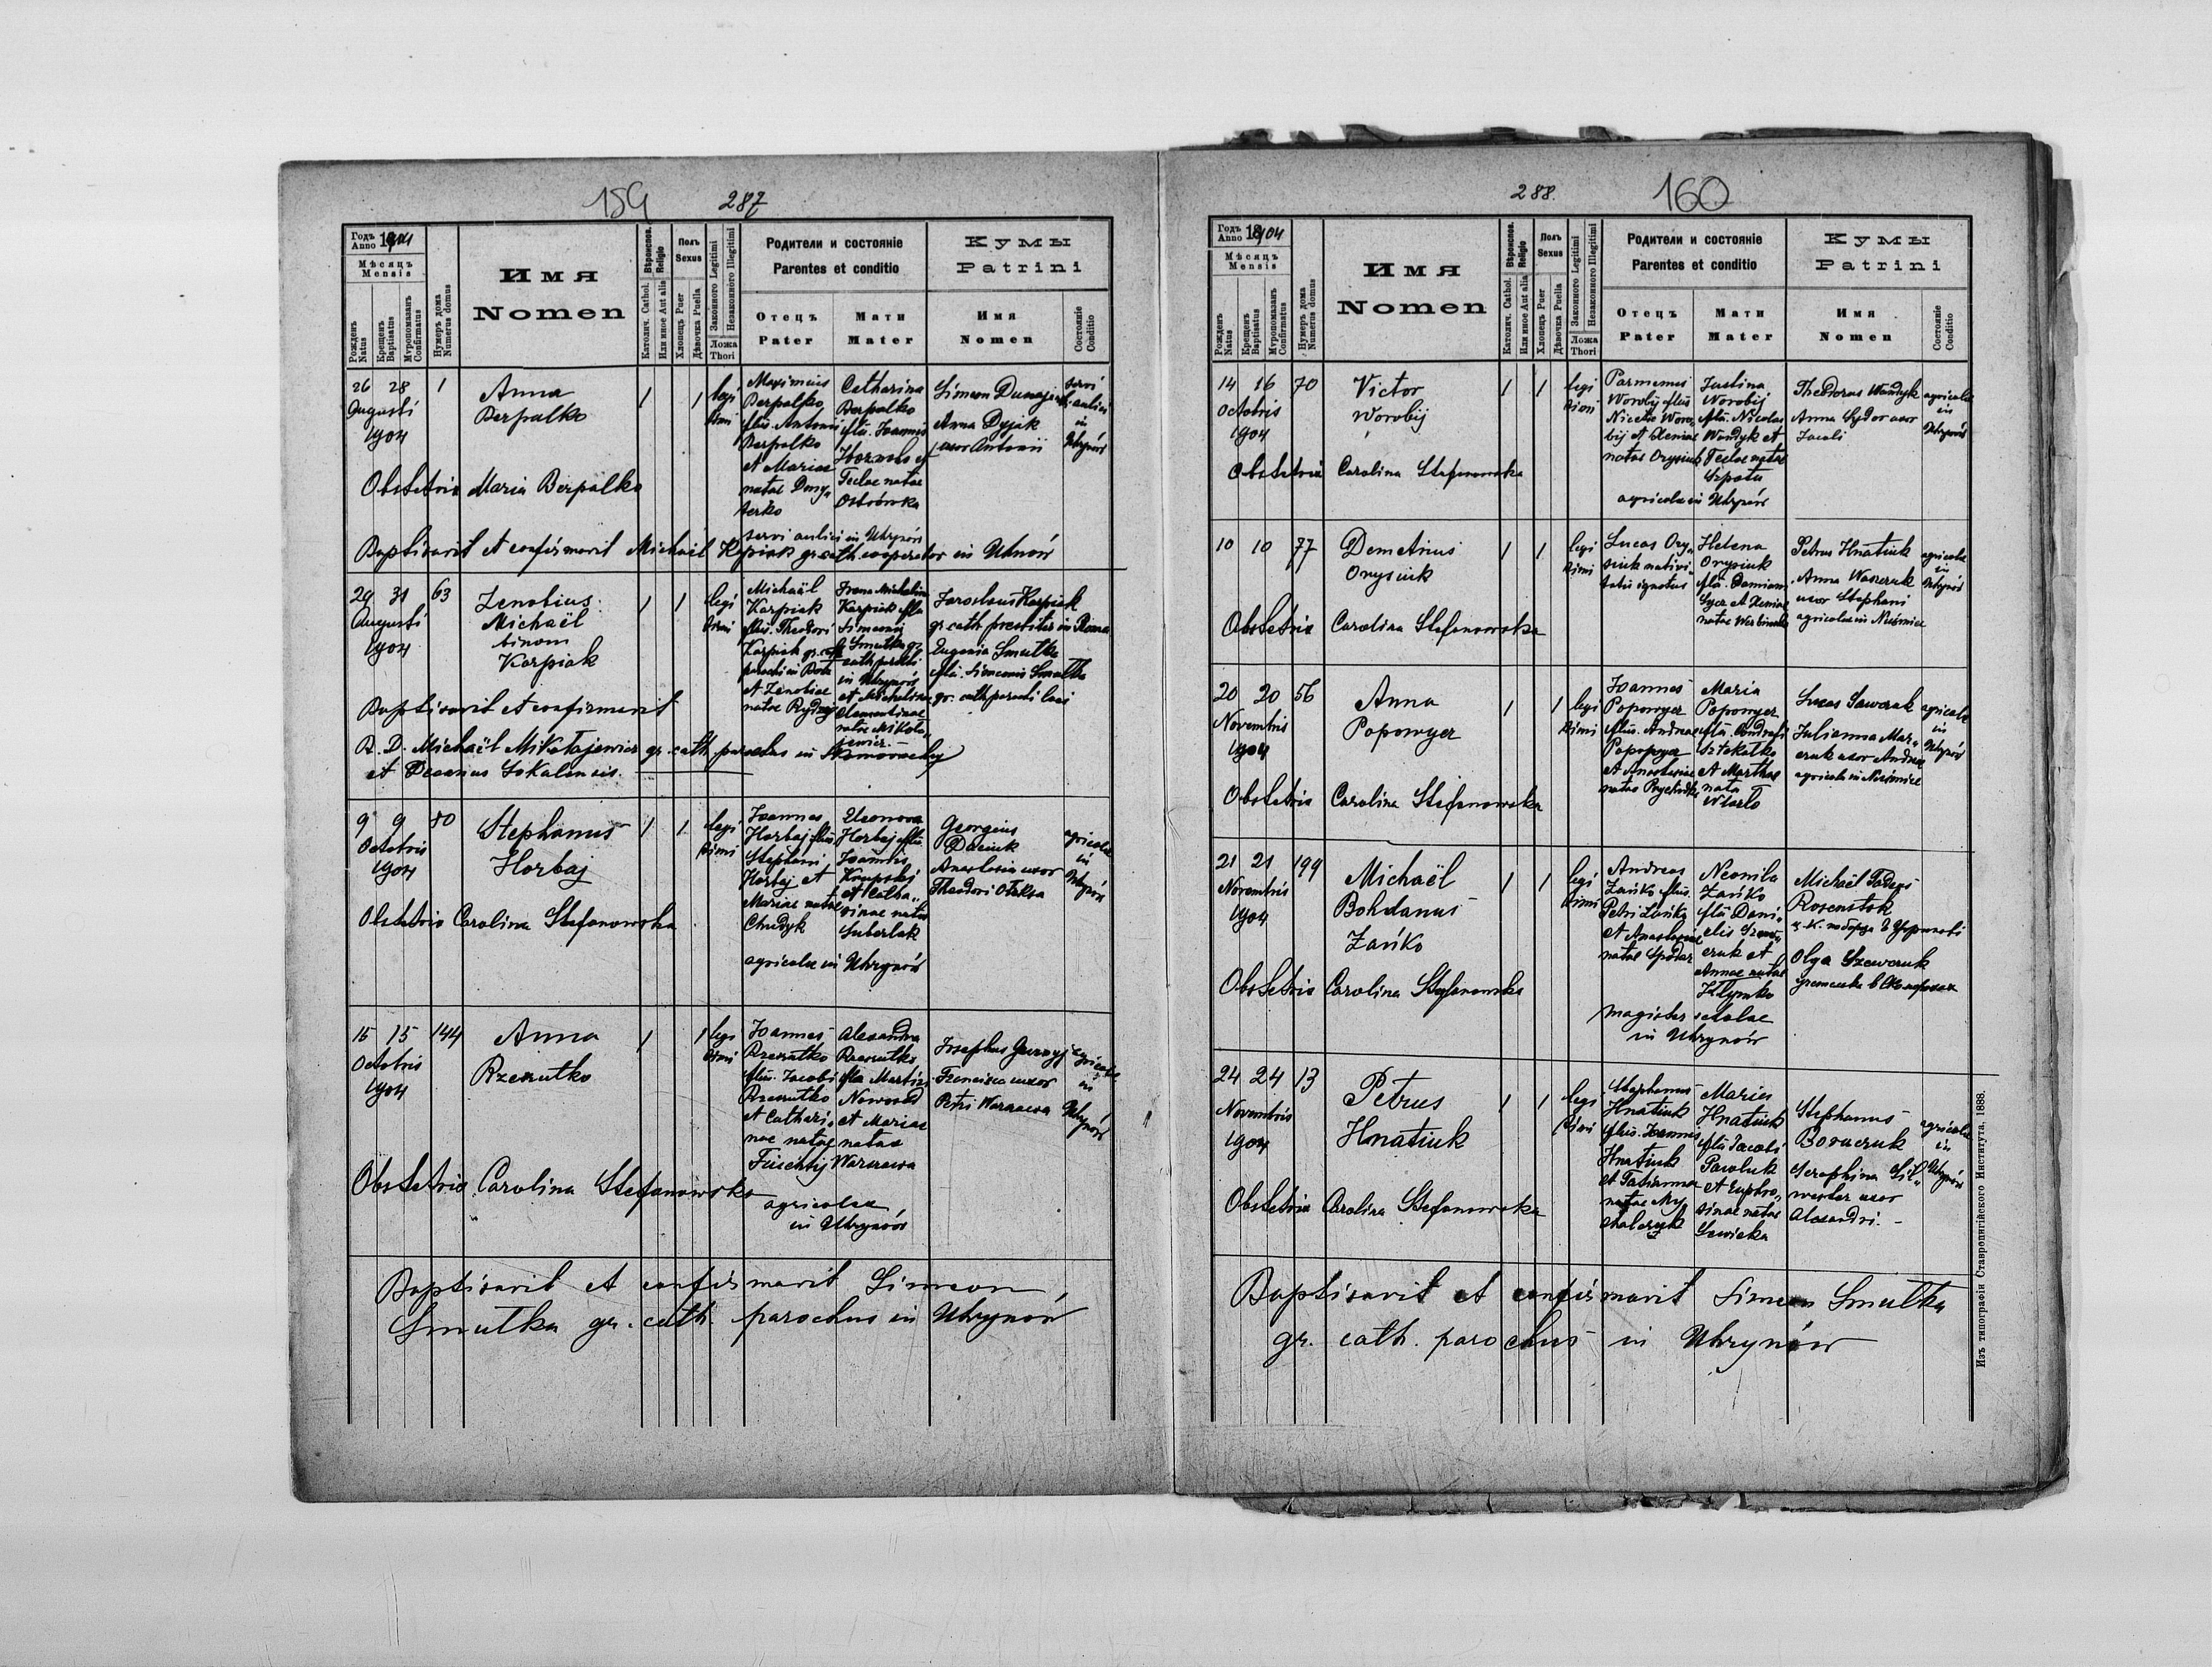 159 287
Годъ Anno 1904
Мѣсяцъ Mensis
Рожденъ Natus
Крещенъ Baptisatus
Мѵропомазанъ Confirmatus
Нумеръ дома Numerus domus
Имя
Nomen
Вѣроиспов. Religio
Католич. Cathol.
Или иное Aut alia
Полъ Sexus
Хлопецъ Puer
Дѣвочка Puella
Законного Legitimi
Незаконного Illegitimi
Ложа Thori
Родители и состояніе
Parentes et conditio
Отецъ Pater
Мати Mater
Кумы
Patrini
Имя
Nomen
Состояніе Conditio
26 28 1
Augusti
1904
Anna
Berpalko
1 1 legi
timi
Maximius
Berpalko
filius Antonii
Berpalko
et Mariae
natae Dmy-
terko
Catharina
Berpalko
filia Joannis
et
Teclae natae
Ostrówka
servi aulici in Uhrynów
Simeon
Anna Dyjak
uxor Antonii
servi
aulici
in
Uhrynów
Obstetrix Maria Berpalko
Baptisavit et confirmavit Michaël Karpiak gr. cath. cooperator in Uhnów
29 31 63
Augusti
1904
Zenobius
Michaël
binom
Karpiak
1 1 legi
timi
Michaël
Karpiak
filius Theodori
Karpiak gr. cath
parochi in
et Zenobiae
natae
Joanna Michalina
Karpiak filia
Simeonis
Smulka gr.
cath parochi
in Uhrynów
et Michalinae
Clementinae
natae Mikoła-
jewicz
Jaroslaus Karpiak
gr. cath. presbiter in
Eugenia Smulka
filia Simeonis Smulka
gr. cath parochi loci
Baptisavit et confirmavit
R. D. Michaël Mikołajewicz gr. cath. parochus in
et Decanus Sokalensis.
9 9 80
Octobris
1904
Stephanus
Horbaj
1 1 legi
timi
Joannes
Horbaj filius
Stephani
Horbaj et
Mariae natae
Chudyk
Eleonora
Horbaj filia
Joannis
Krupski
et Catha-
rinae natae
Suberlak
agricolae in Uhrynów
Georgius
Daciuk
Anastasia uxor
Theodori
agricolae
in
Uhrynów
Obstetrix Carolina Stefanowska
15 15 144
Octobris
1904
Anna
Rzeszutko
1 1 legi
timi
Joannes
Rzeszutko
filius Jacobi
Rzeszutko
et Cathari-
nae natae
Alexandra
Rzeszutko
filia Martini
Nowosad
et Mariae
natae
Warszawa
agricolae
in Uhrynów
Josephus
Francisca uxor
Petri Warszawa
agricolae
in
Uhrynów
Obstetrix Carolina Stefanowska
Baptisavit et confirmavit Simeon
Smulka gr. cath. parochus in Uhrynów
288. 160
Годъ Anno 1904
Мѣсяцъ Mensis
Рожденъ Natus
Крещенъ Baptisatus
Мѵропомазанъ Confirmatus
Нумеръ дома Numerus domus
Имя
Nomen
Вѣроиспов. Religio
Католич. Cathol.
Или иное Aut alia
Полъ Sexus
Хлопецъ Puer
Дѣвочка Puella
Законного Legitimi
Незаконного Illegitimi
Ложа Thori
Родители и состояніе
Parentes et conditio
Отецъ Pater
Мати Mater
Кумы
Patrini
Имя
Nomen
Состояніе Conditio
14 16 70
Octobris
1904
Victor
Worobij
1 1 legi
timi
Parmenus
Worobij filius
Nicetae Woro-
bij et Xeniae
natae Onysiuk
Justina
Worobij
filia Nicolai
Wandyk et
Teclae natae
Szpota
agricolae in Uhrynów
Theodorus Wandyk
Anna Sydor uxor
Jacobi
agricolae
in
Uhrynów
Obstetrix Carolina Stefanowska
10 10 77
Demetrius
Onysiuk
1 1 legi
timi
Lucas Ony-
siuk nativi-
tatis ignotus
Helena
Onysiuk
filia Damiani
et Xeniae
natae
Petrus Hnatiuk
Anna
uxor Stephani
agricolae in
agricolae
in
Uhrynów
Obstetrix Carolina Stefanowska
20 20 56
Novembris
1904
Anna
Popowycz
1 1 legi
timi
Joannes
Popowycz
filius Andreae
Popowycz
et Anastasiae
natae
Maria
Popowycz
filia
et Marthae
natae
Lucas Sawczuk
Julianna Mar-
czuk uxor Andreae
agricolae in
agricolae
in
Uhrynów
Obstetrix Carolina Stefanowska
21 21 199
Novembris
1904
Michaël
Bohdanus
Zańko
1 1 legi
timi
Andreas
Zańko filius
Petri Zańko
et Anastasiae
natae
Neonila
Zańko
filia Dani-
elis Szew-
czuk et
Annae natae
Kłymko
magister scholae
in Uhrynów
Michaël
Rosenstok
Olga Szewczuk
Obstetrix Carolina Stefanowska
24 24 13
Novembris
1904
Petrus
Hnatiuk
1 1 legi
timi
Stephanus
Hnatiuk
filius Joannis
Hnatiuk
et Tatianna
natae My-
chalczyk
Maria
Hnatiuk
filia Jacobi
Pawluk
et Euphro-
sinae natae
Sawicka
Stephanus
Seraphina Sil-
wester uxor
Alexandri.
agricolae
in
Uhrynów
Obstetrix Carolina Stefanowska
Baptisavit et confirmavit Simeon Smulka
gr. cath. parochus in Uhrynów
Изъ типографіи Ставропигійского Института. 1888.